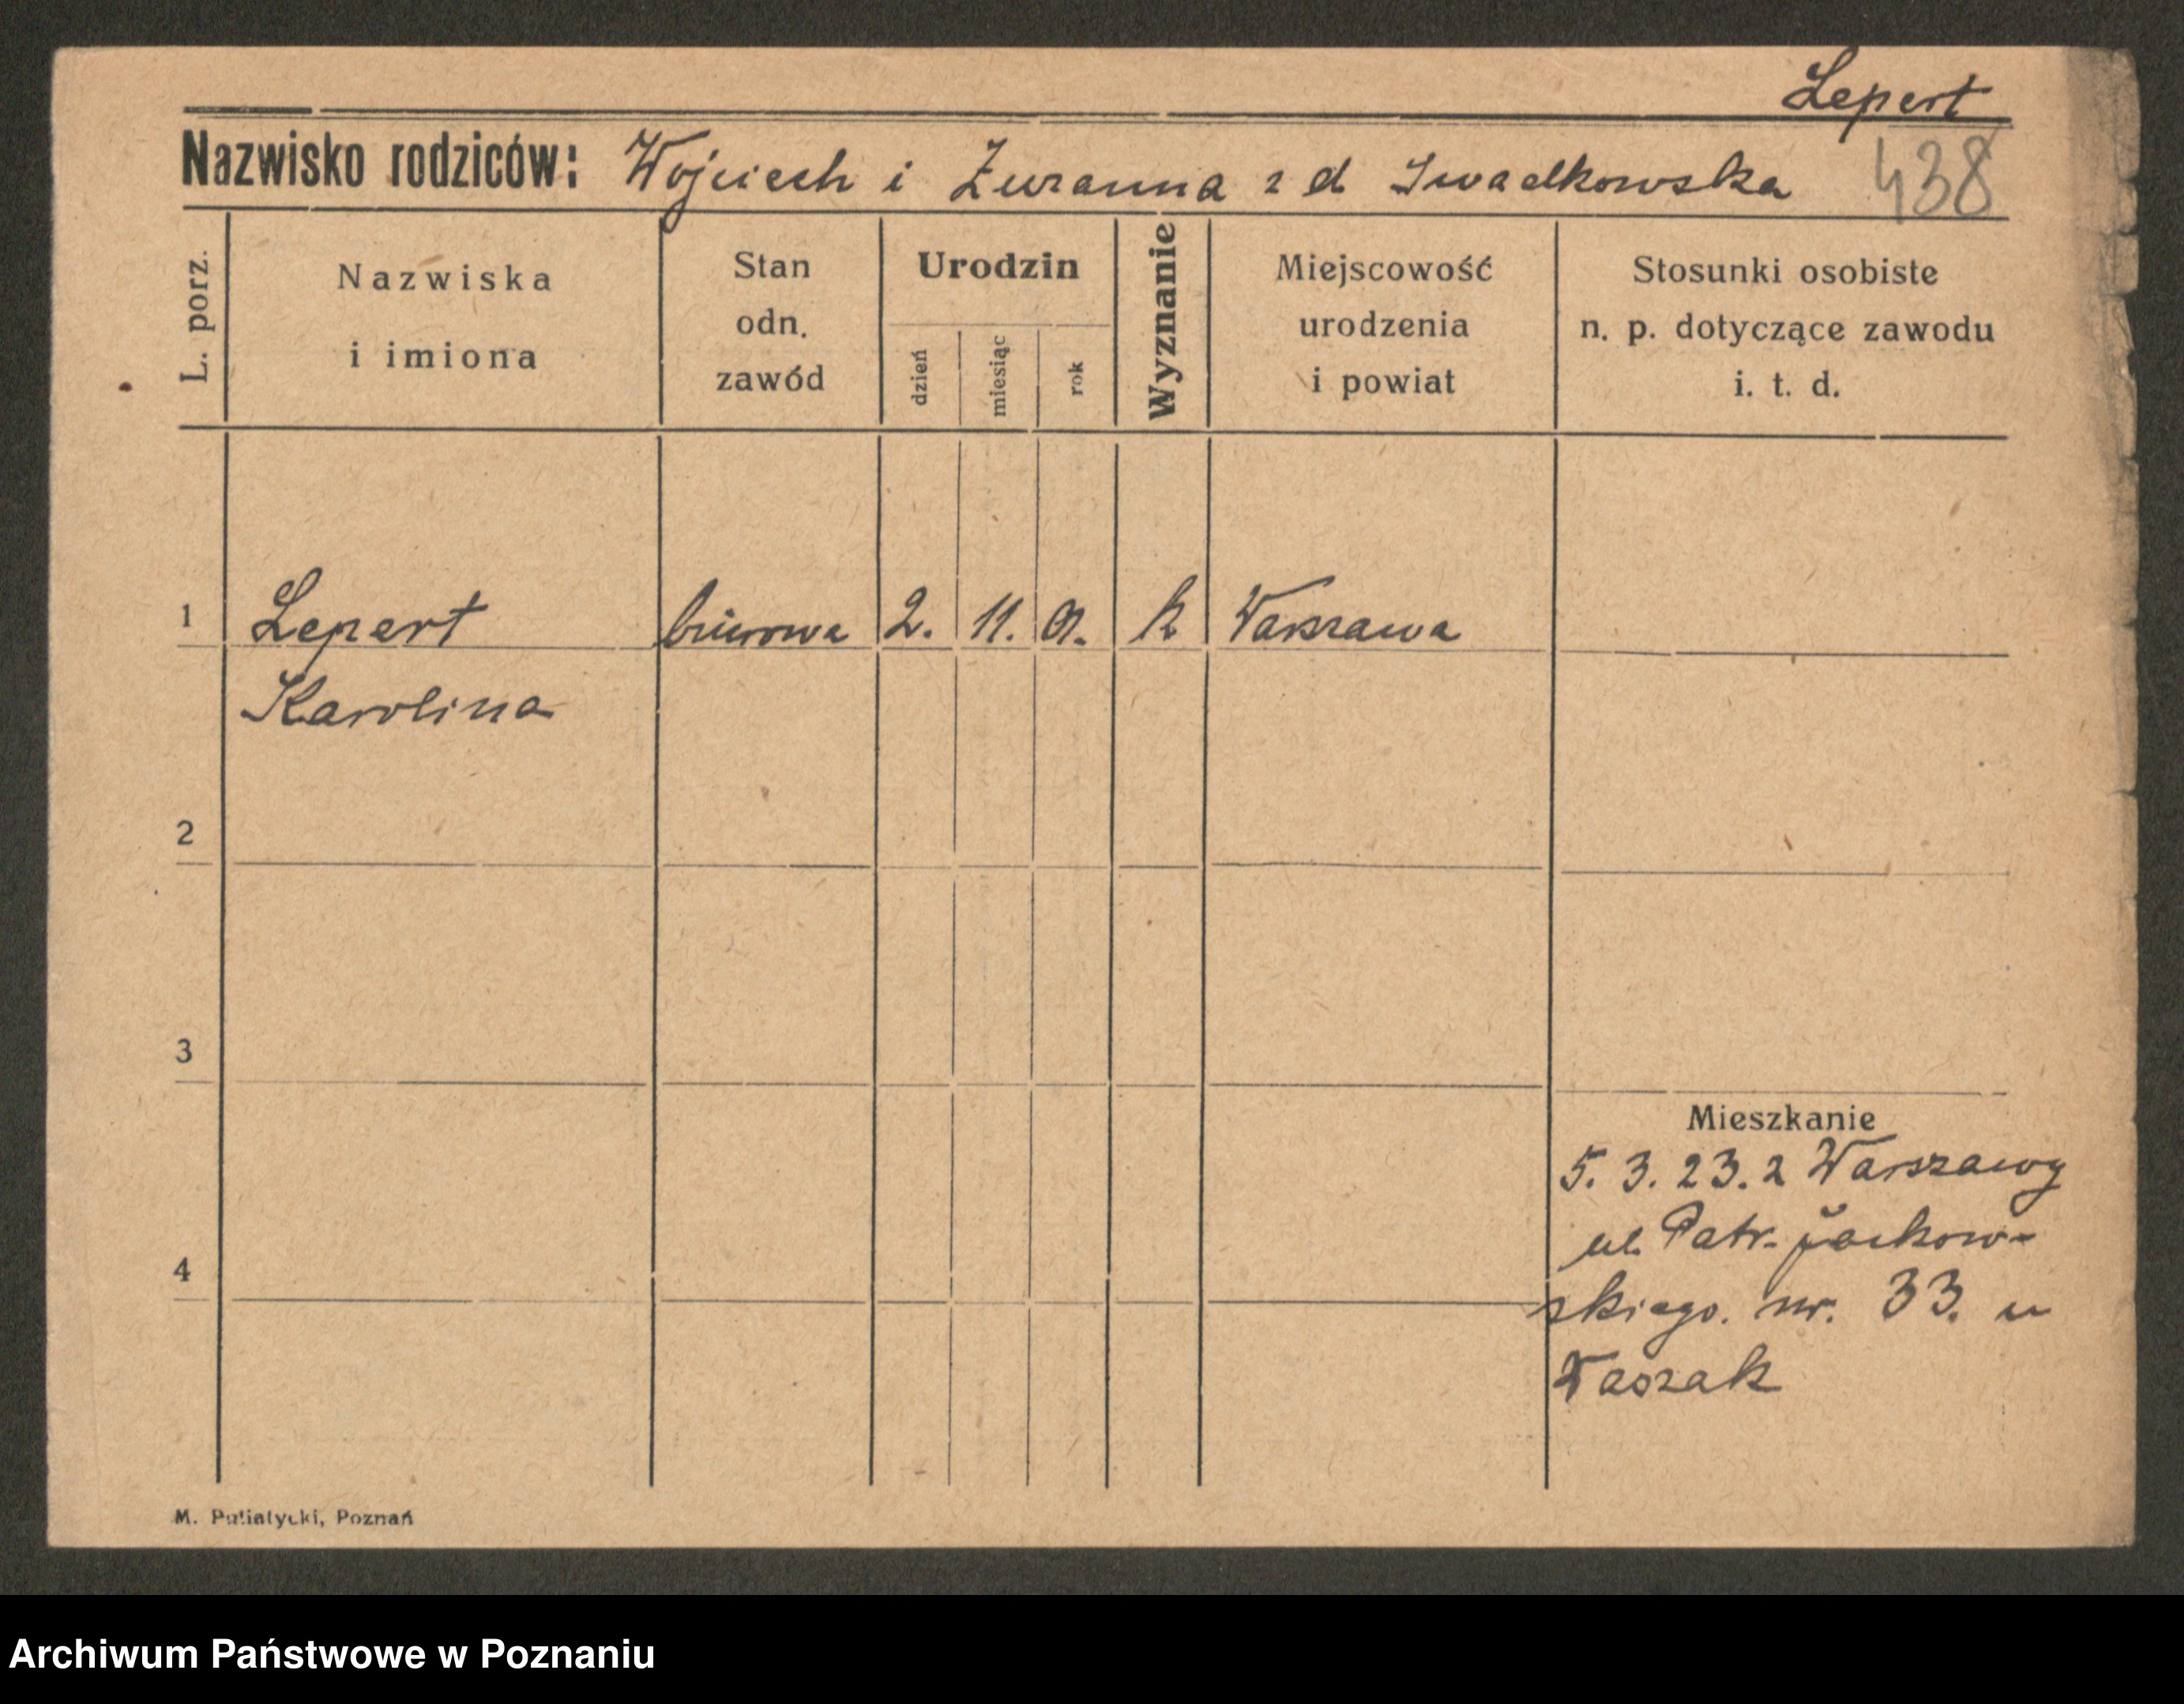 Lepert
Nazwisko rodziców: Wojciech i Zuzanna z d 438
L. porz.
Nazwiska i imiona
Stan odn. zawód
Urodzin
dzień miesiąc rok
Wyznanie
Miejscowość urodzenia i powiat
Stosunki osobiste n. p. dotyczące zawodu i. t. d.
1 Lepert biurowa 2. 11. 01. k Warszawa
Karolina
2
3
Mieszkanie
5. 3. 23. z Warszawy
ul. Patr. Jackow-
4
skiego. nr. 33. u
Waszak
M. Putiatycki, Poznań
Archiwum Państwowe w Poznaniu